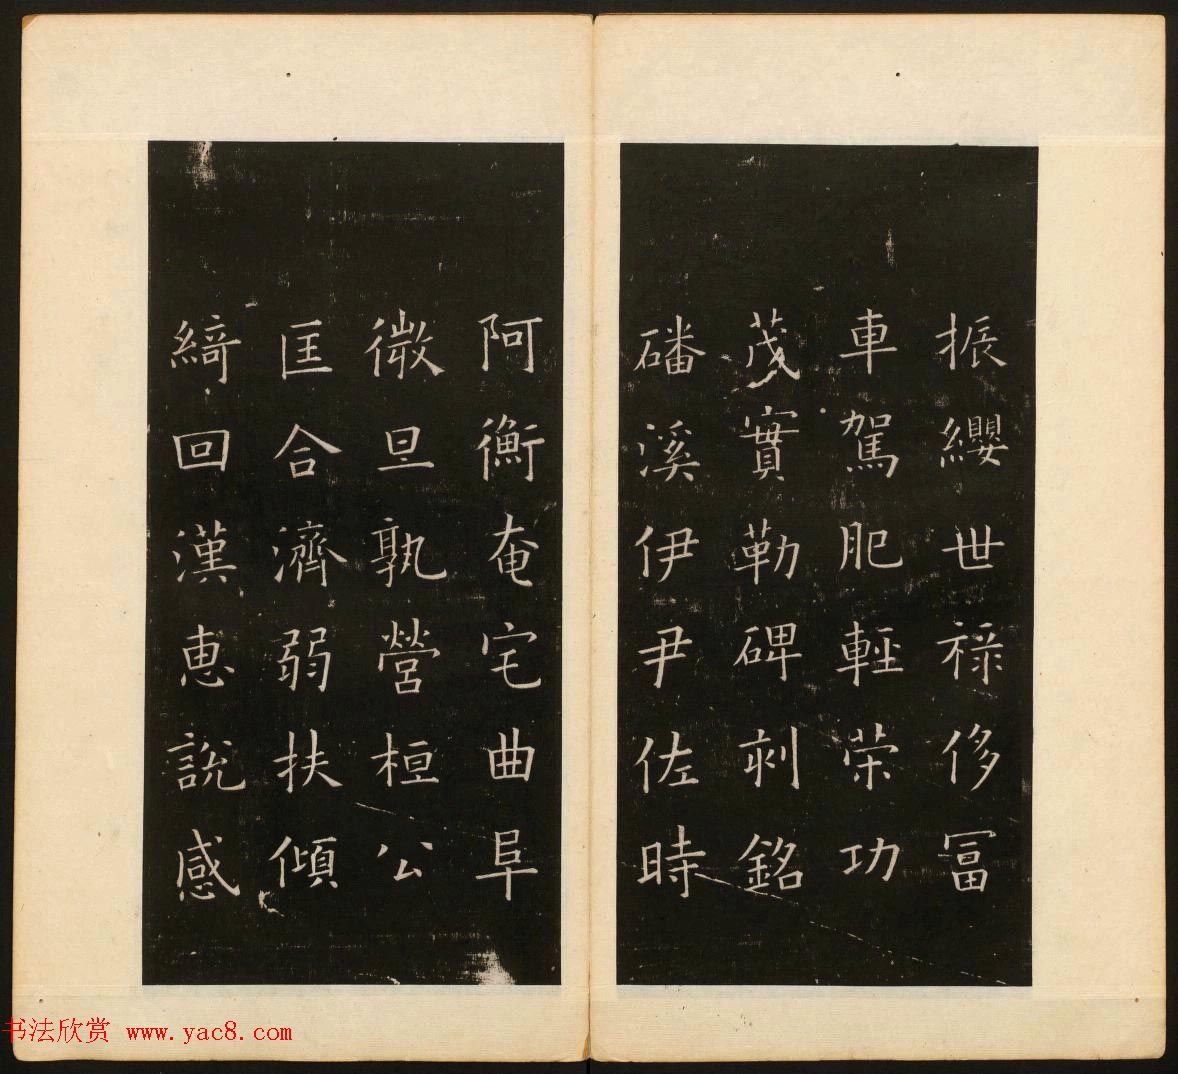 振纓世祿侈冨
車駕肥輕荣功
茂實勒碑刻銘
磻溪伊尹佐時
阿衡奄宅曲阜
微旦孰營桓公
匡合濟弱扶傾
綺回漢惠說感
书法欣赏 www.yac8.com